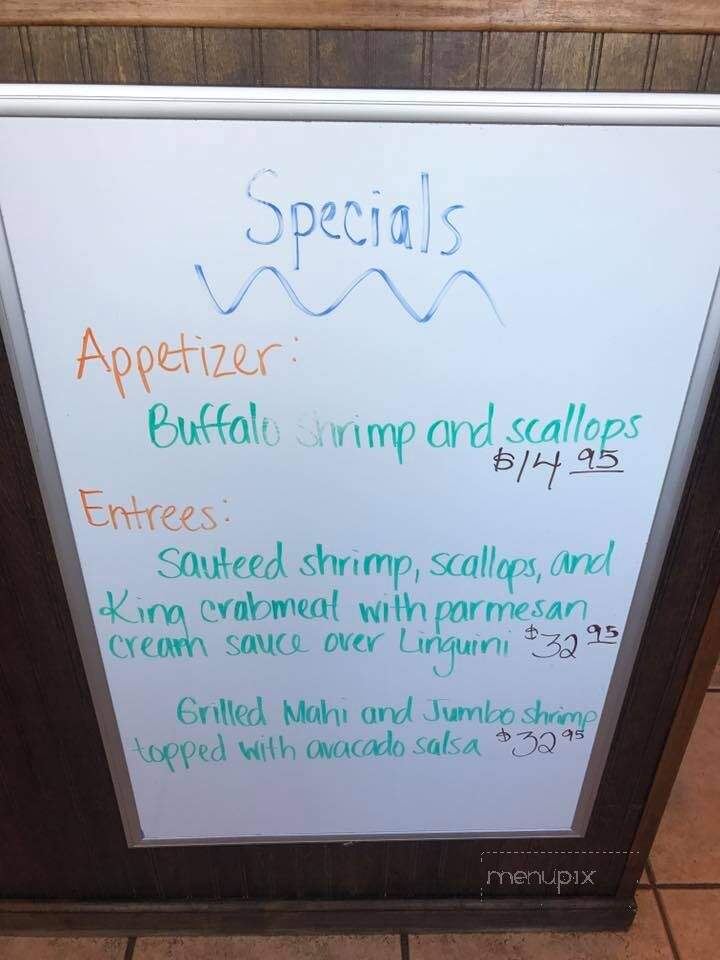 Specials
Appetizer:
Buffalo shrimp and scallops
$14.95
Entrees:
Sauteed shrimp, scallops, and
King crabmeat with parmesan
cream sauce over Linguini $32.95
Grilled Mahi and Jumbo shrimp
topped with avacado salsa $32.95
menupix